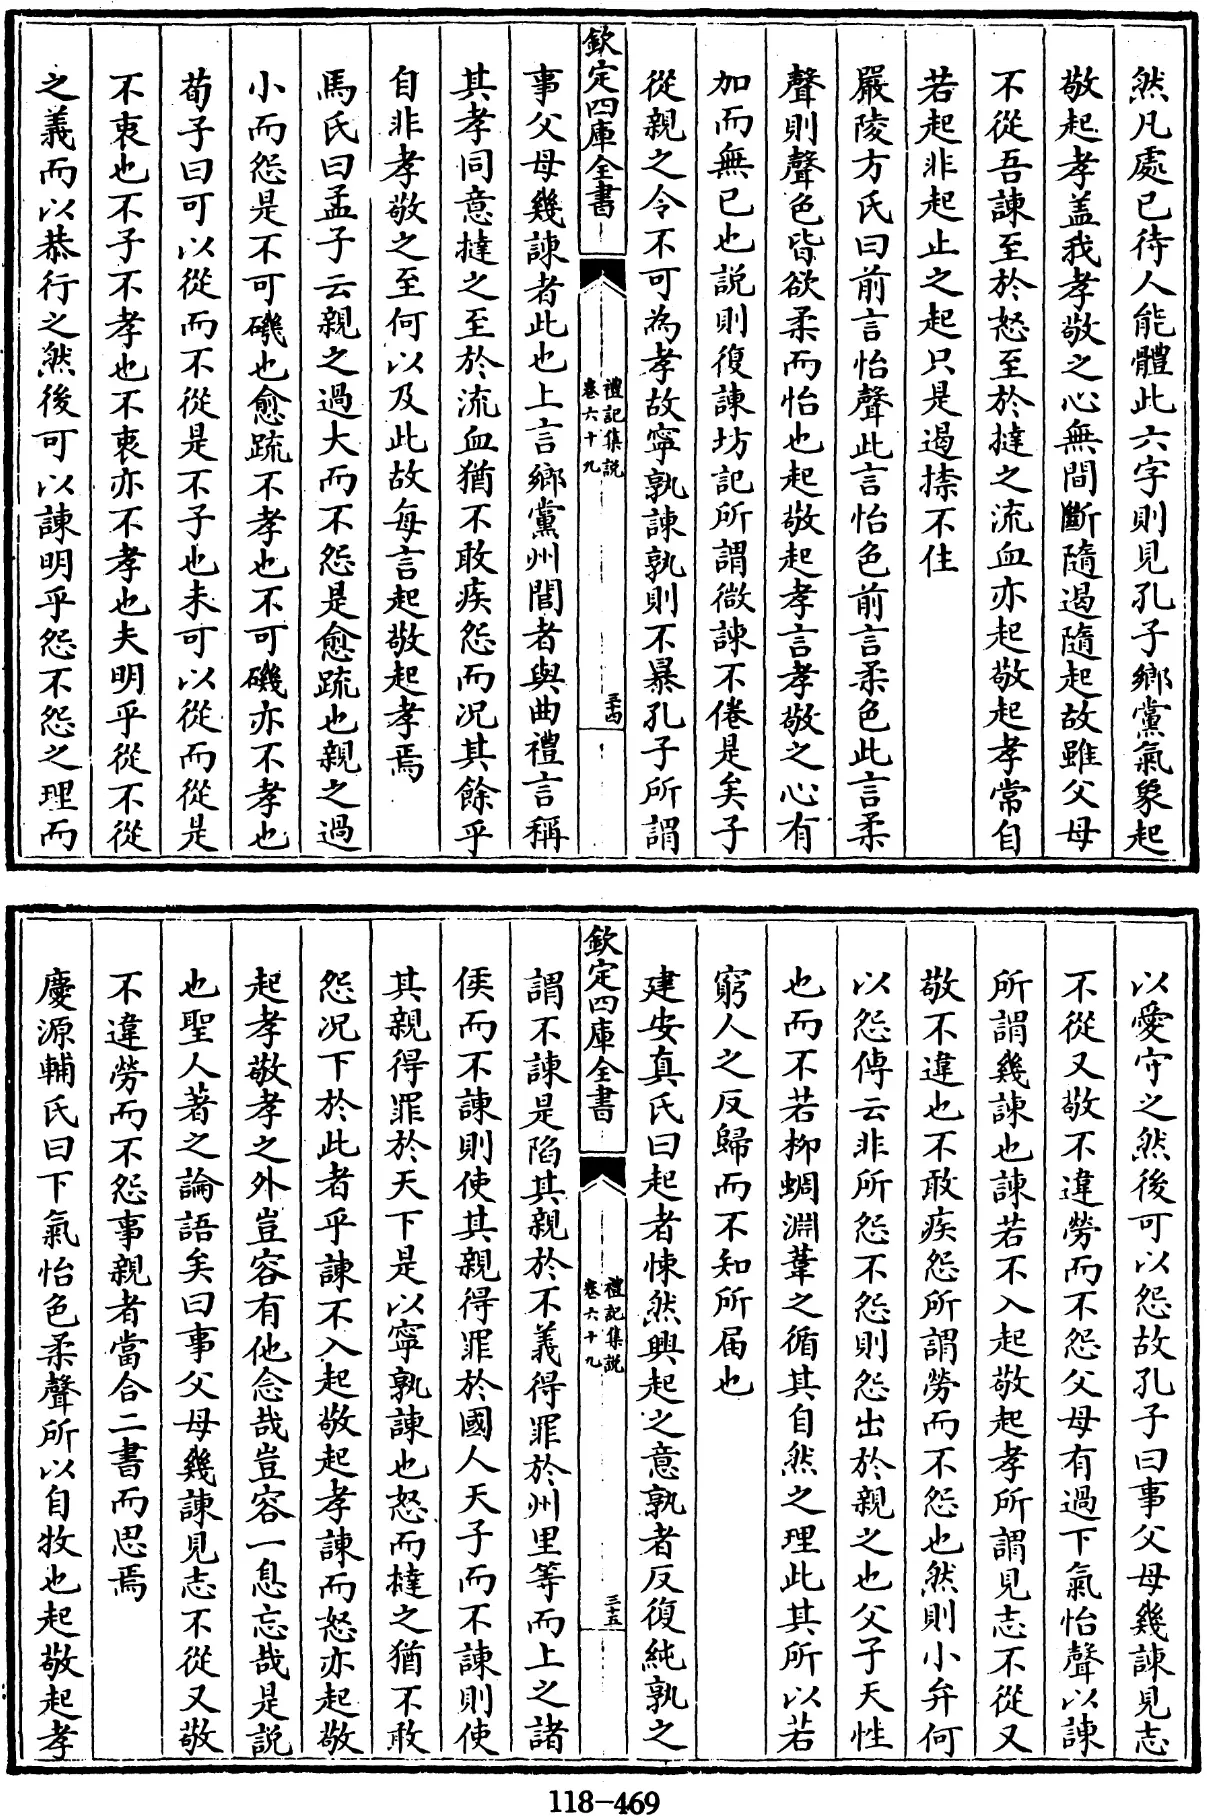 然凡處已待人能體此六字則見孔子鄉黨氣象起
敬起孝盖我孝敬之心無間斷隨遏隨起故雖父母
不從吾諫至於怒至於撻之流血亦起敬起孝常自
若起非起止之起只是遏捺不住
嚴陵方氏曰前言怡聲此言怡色前言柔色此言柔
聲則聲色皆欲柔而怡也起敬起孝言孝敬之心有
加而無已也説則復諫坊記所謂微諫不倦是矣子
從親之令不可為孝故寧孰諫孰則不暴孔子所謂
欽定四庫全書
禮記集説
卷六十九
三十四
事父母幾諫者此也上言鄉黨州閭者與曲禮言稱
其孝同意撻之至於流血猶不敢疾怨而况其餘乎
自非孝敬之至何以及此故每言起敬起孝焉
馬氏曰孟子云親之過大而不怨是愈疏也親之過
小而怨是不可磯也愈疏不孝也不可磯亦不孝也
荀子曰可以從而不從是不子也未可以從而從是
不衷也不子不孝也不衷亦不孝也夫明乎從不從
之義而以恭行之然後可以諫明乎怨不怨之理而
以愛守之然後可以怨故孔子曰事父母幾諫見志
不從又敬不違勞而不怨父母有過下氣怡聲以諫
所謂幾諫也諫若不入起敬起孝所謂見志不從又
敬不違也不敢疾怨所謂勞而不怨也然則小弁何
以怨傳云非所怨不怨則怨出於親之也父子天性
也而不若柳蜩淵葦之循其自然之理此其所以若
窮人之反歸而不知所届也
建安真氏曰起者悚然興起之意孰者反復純孰之
欽定四庫全書
禮記集説
卷六十九
三十五
謂不諫是陷其親於不義得罪於州里等而上之諸
侯而不諫則使其親得罪於國人天子而不諫則使
其親得罪於天下是以寧孰諫也怒而撻之猶不敢
怨况下於此者乎諫不入起敬起孝諫而怒亦起敬
起孝敬孝之外豈容有他念哉豈容一息忘哉是説
也聖人著之論語矣曰事父母幾諫見志不從又敬
不違勞而不怨事親者當合二書而思焉
慶源輔氏曰下氣怡色柔聲所以自牧也起敬起孝
118-469